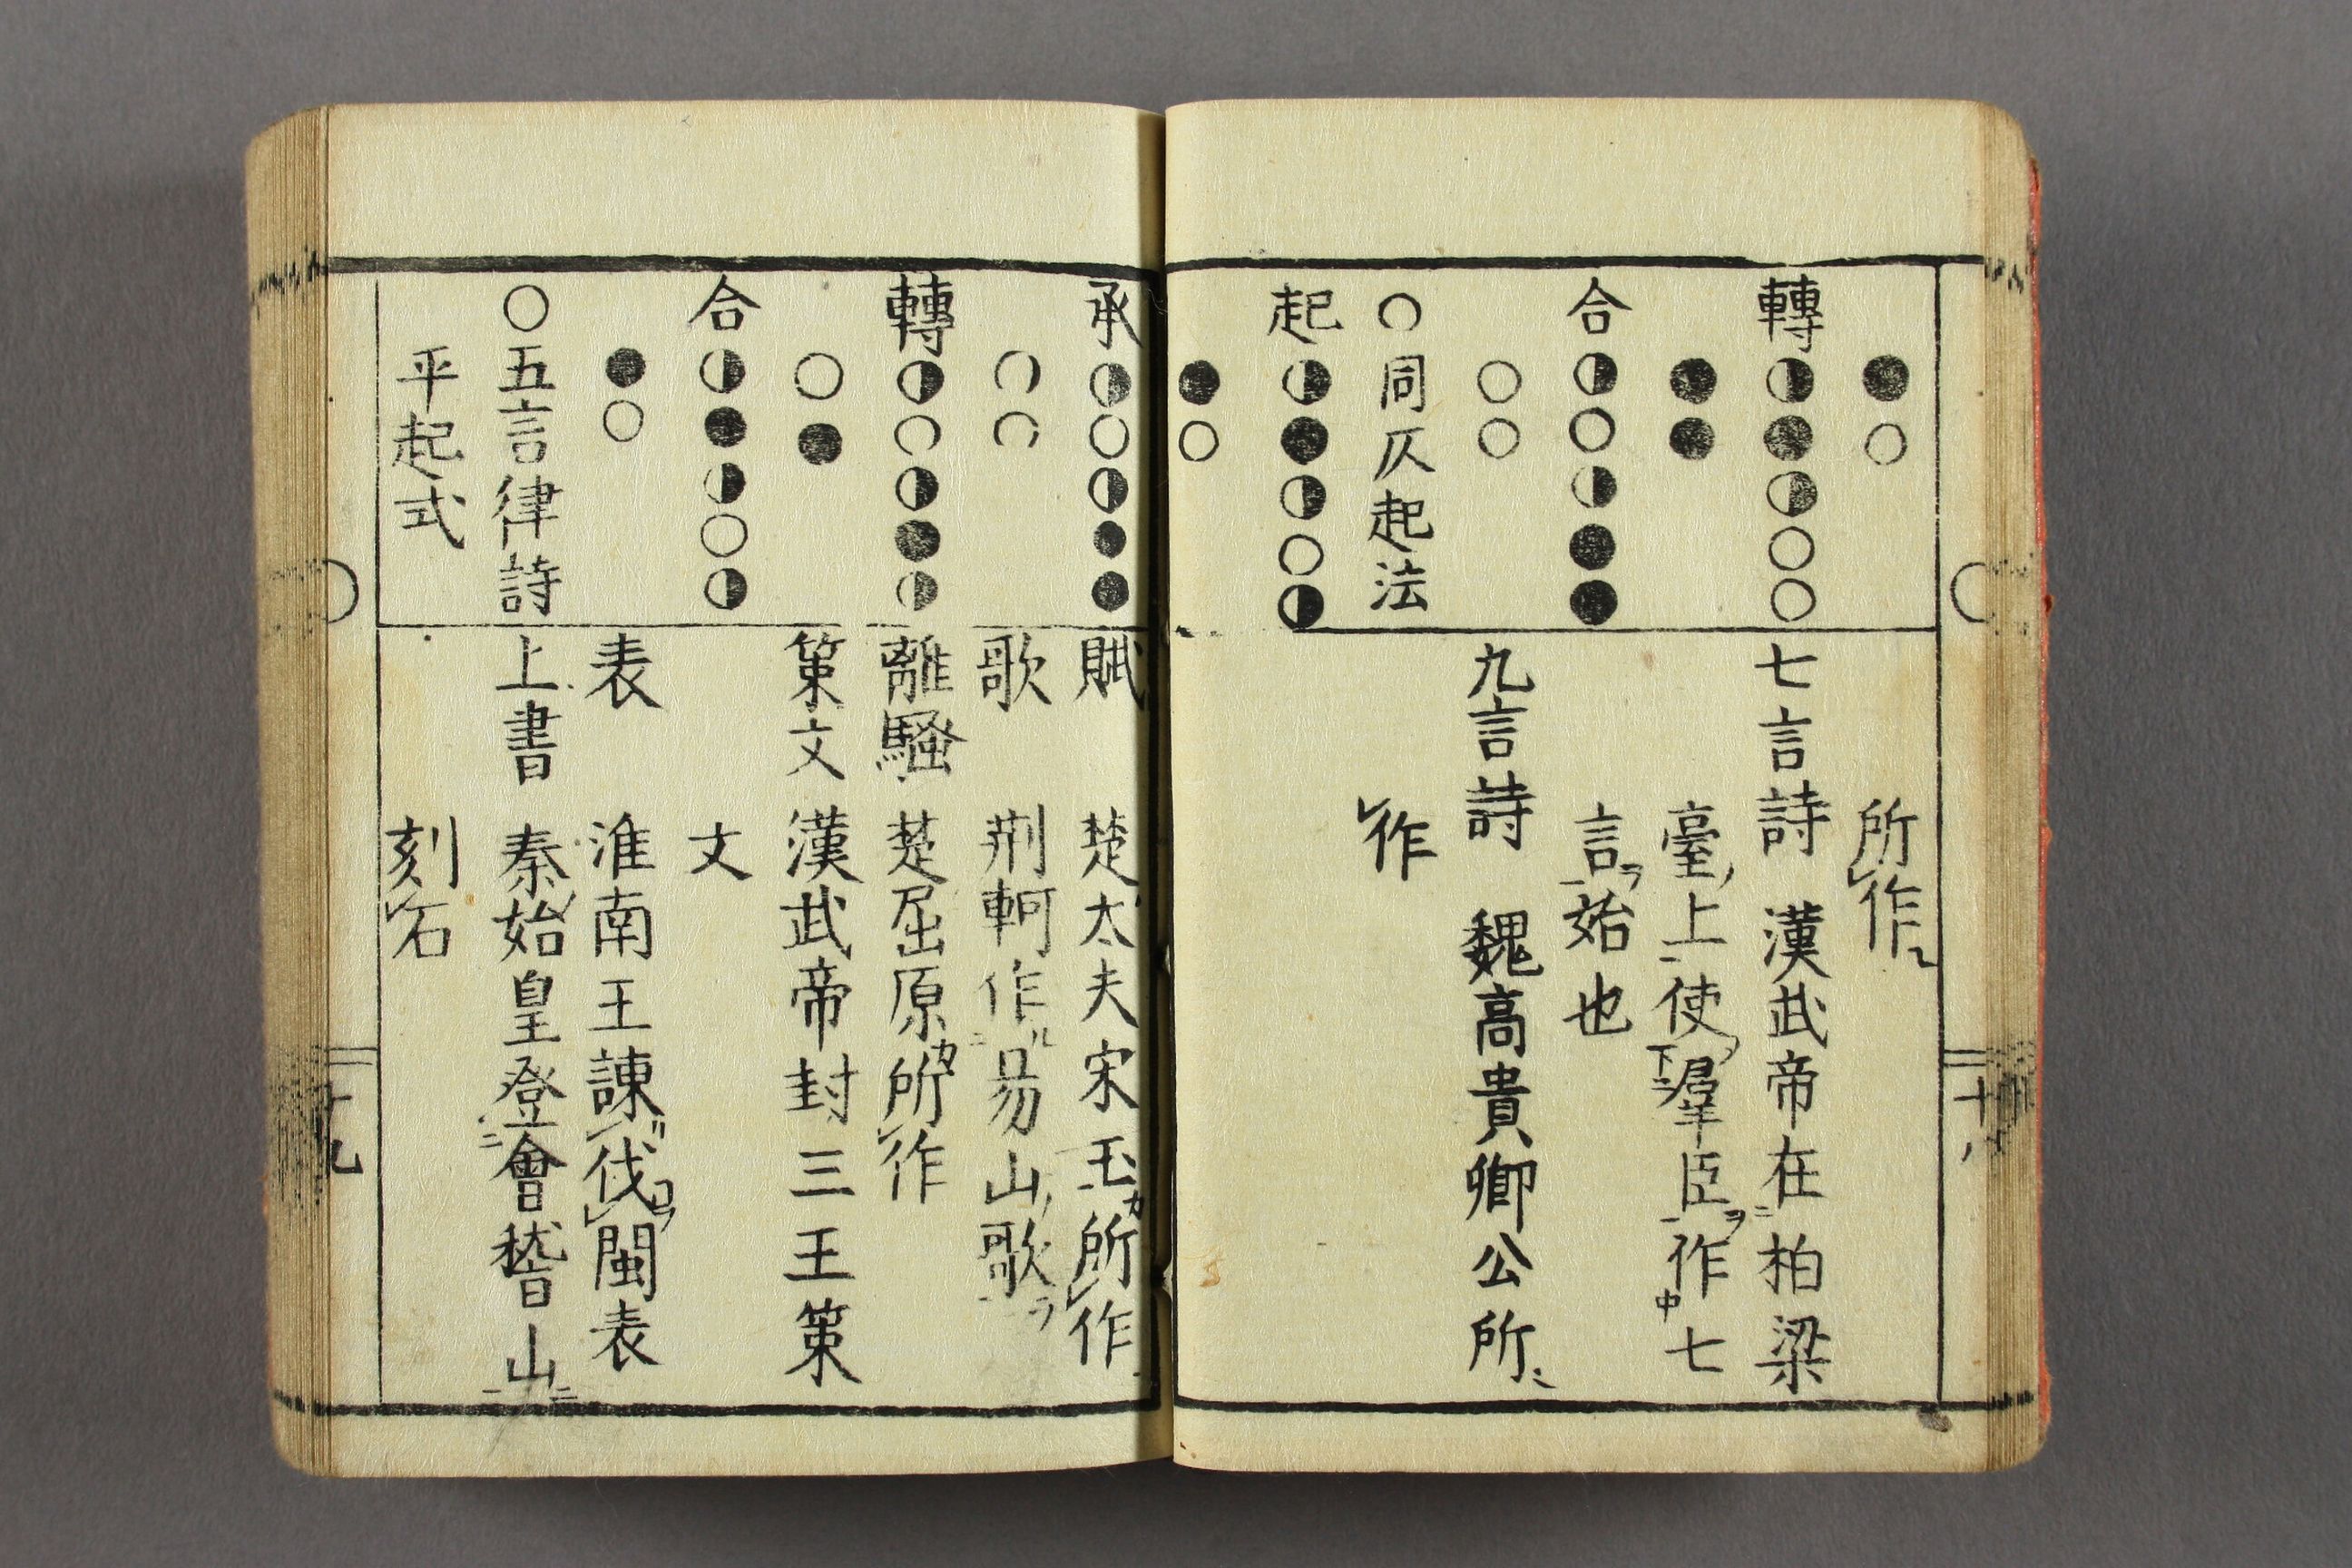 ●○
轉◑●◑○○
●●
合◑○◑●●
○○
○同仄起法
起◑●◑○◑
●○
所作
七言詩 漢武帝在柏梁
臺上使羣臣作七
言始也
九言詩 魏高貴卿公所
作
十八
承◑○◑●●
○○
轉◑○◑●◑
○●
合◑●◑○◑
●○
○五言律詩
平起式
賦 楚太夫宋玉所作
歌 荊軻作昜山歌
離騷 楚屈原所作
策文 漢武帝封三王策
文
表 淮南王諫伐閩表
上書 秦始皇登會稽山
刻石
十九